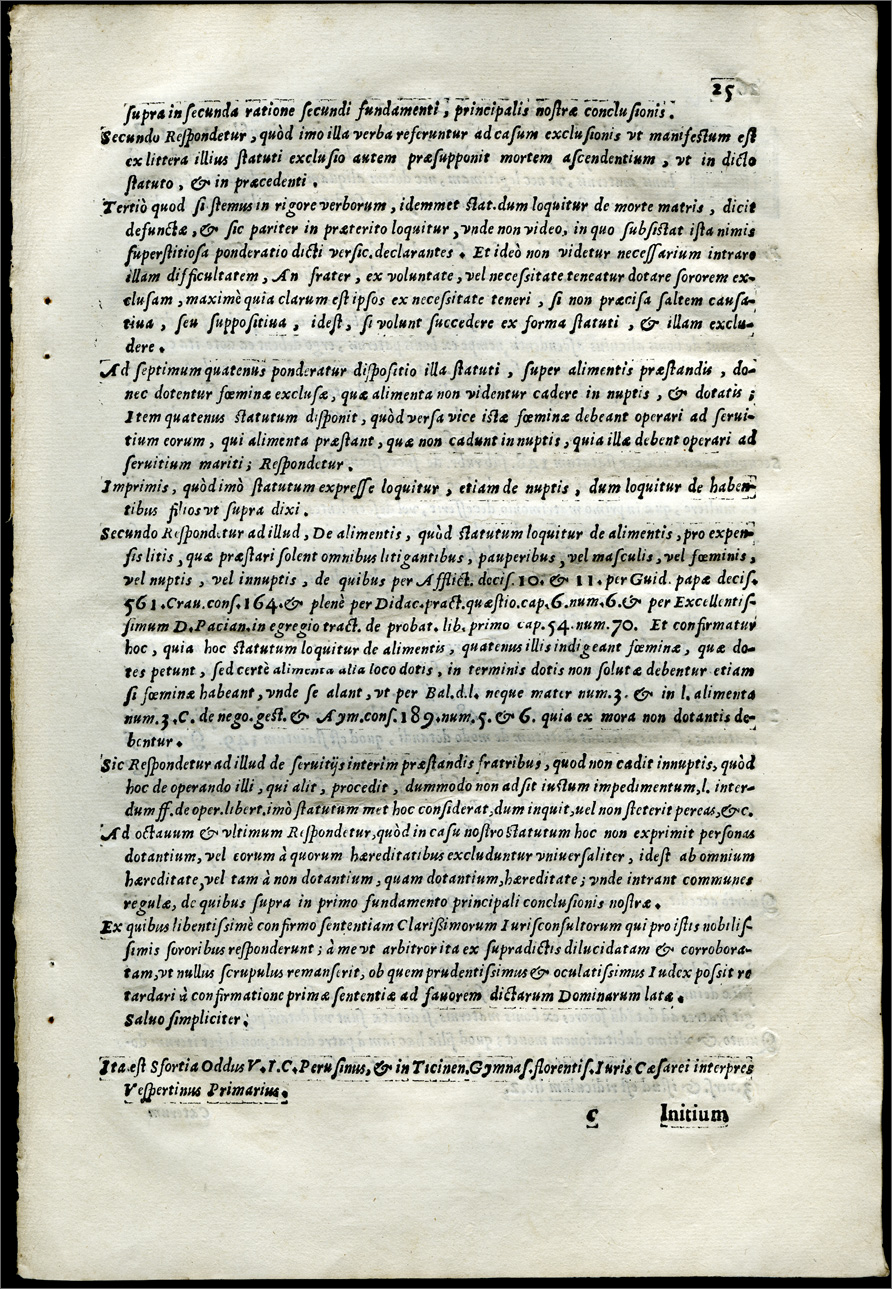 25
supra in secunda ratione secundi fundamenti, principalis nostræ conclusionis.
Secundo Respondetur, quòd imo illa verba referuntur ad casum exclusionis vt manifestum est
ex littera illius statuti exclusio autem præsupponit mortem ascendentium, vt in dicto
statuto, & in præcedenti.
Tertiò quod si stemus in rigore verborum, idemmet stat. dum loquitur de morte matris, dicit
defunctæ, & sic pariter in præterito loquitur, vnde non video, in quo subsistat ista nimis
superstitiosa ponderatio dicti versic. declarantes. Et ideò non videtur necessarium intrare
illam difficultatem, An frater, ex voluntate, vel necessitate teneatur dotare sororem ex-
clusam, maximè quia clarum est ipsos ex necessitate teneri, si non præcisa saltem causa-
tiua, seu suppositiua, idest, si volunt succedere ex forma statuti, & illam exclu-
dere.
Ad septimum quatenus ponderatur dispositio illa statuti, super alimentis præstandis, do-
nec dotentur fœminæ exclusæ, quæ alimenta non videntur cadere in nuptis, & dotatis;
Item quatenus statutum disponit, quòd versa vice istæ fœminæ debeant operari ad serui-
tium eorum, qui alimenta præstant, quæ non cadunt in nuptis, quia illæ debent operari ad
seruitium mariti; Respondetur.
Imprimis, quòd imò statutum expresse loquitur, etiam de nuptis, dum loquitur de haben-
tibus filios vt supra dixi.
Secundo Respondetur ad illud, De alimentis, quòd statutum loquitur de alimentis, pro expen-
sis litis, quæ præstari solent omnibus litigantibus, pauperibus, vel masculis, vel fœminis,
vel nuptis, vel innuptis, de quibus per Afflict. decis. 10. & 11. per Guid. papæ decis.
561. Crau. cons. 164. & plenè per Didac. pract. quæstio. cap. 6. num. 6. & per Excellentis-
simum D. Pacian. in egregio tract. de probat. lib. primo cap. 54. num. 70. Et confirmatur
hoc, quia hoc statutum loquitur de alimentis, quatenus illis indigeant fœminæ, quæ do-
tes petunt, sed certè alimenta alia loco dotis, in terminis dotis non solutæ debentur etiam
si fœminæ habeant, vnde se alant, vt per Bal. d. l. neque mater num. 3. & in l. alimenta
num. 3. C. de nego. gest. & Aym. cons. 189. num. 5. & 6. quia ex mora non dotantis de-
bentur.
Sic Respondetur ad illud de seruitijs interim præstandis fratribus, quod non cadit innuptis, quòd
hoc de operando illi, qui alit, procedit, dummodo non adsit iustum impedimentum, l. inter-
dum ff. de oper. libert. imò statutum met hoc considerat, dum inquit, uel non steterit per eas, &c.
Ad octauum & vltimum Respondetur, quòd in casu nostro statutum hoc non exprimit personas
dotantium, vel eorum à quorum hæreditatibus excluduntur vniuersaliter, idest ab omnium
hæreditate, vel tam à non dotantium, quam dotantium, hæreditate; vnde intrant communes
regulæ, de quibus supra in primo fundamento principali conclusionis nostræ.
Ex quibus libentissimè confirmo sententiam Clarißimorum Iurisconsultorum qui pro istis nobilis-
simis sororibus responderunt; à me vt arbitror ita ex supradictis dilucidatam & corrobora-
tam, vt nullus scrupulus remanserit, ob quem prudentissimus & oculatissimus Iudex possit re
tardari à confirmatione primæ sententiæ ad fauorem dictarum Dominarum latæ.
Saluo simpliciter;
Ita est Sfortia Oddus V. I. C. Perusinus, & in Ticinen. Gymnas. florentis. Iuris Cæsarei interpres
Vespertinus Primarius.
C Initium